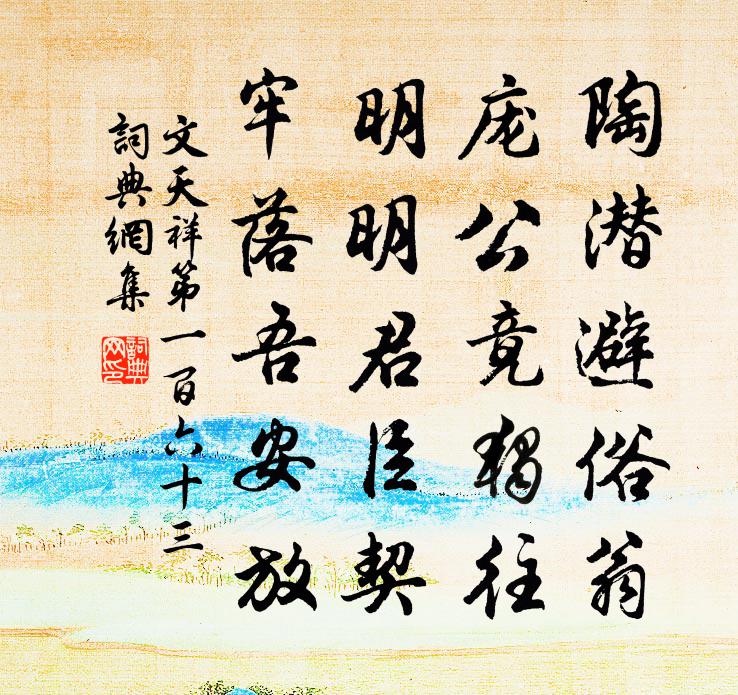 陶潜避俗翁
庞公竟獨往
明明君臣契
牢落吾安放
文天祥第一百六十三
詞典網集
詞典
网印